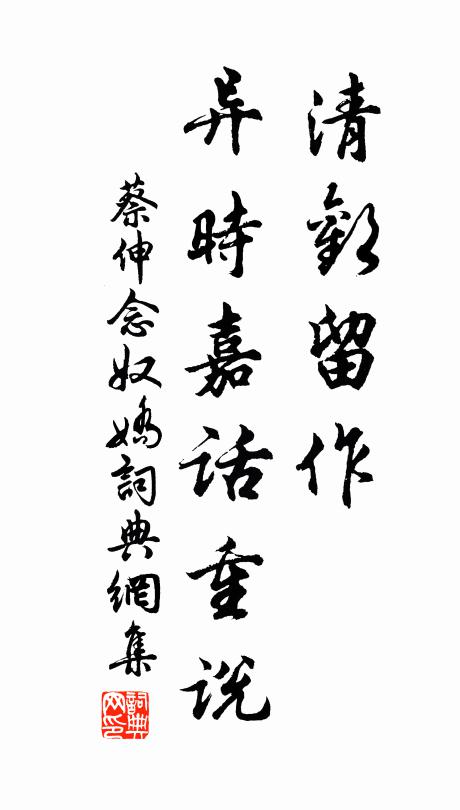 清歡留作
异時嘉話重說
蔡伸念奴嬌詞典網集
詞典网印